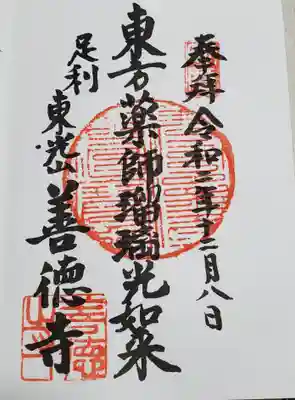 奉拜
令和二年十二月八日
東方薬師瑠璃光如来
足利
東光山
善德寺